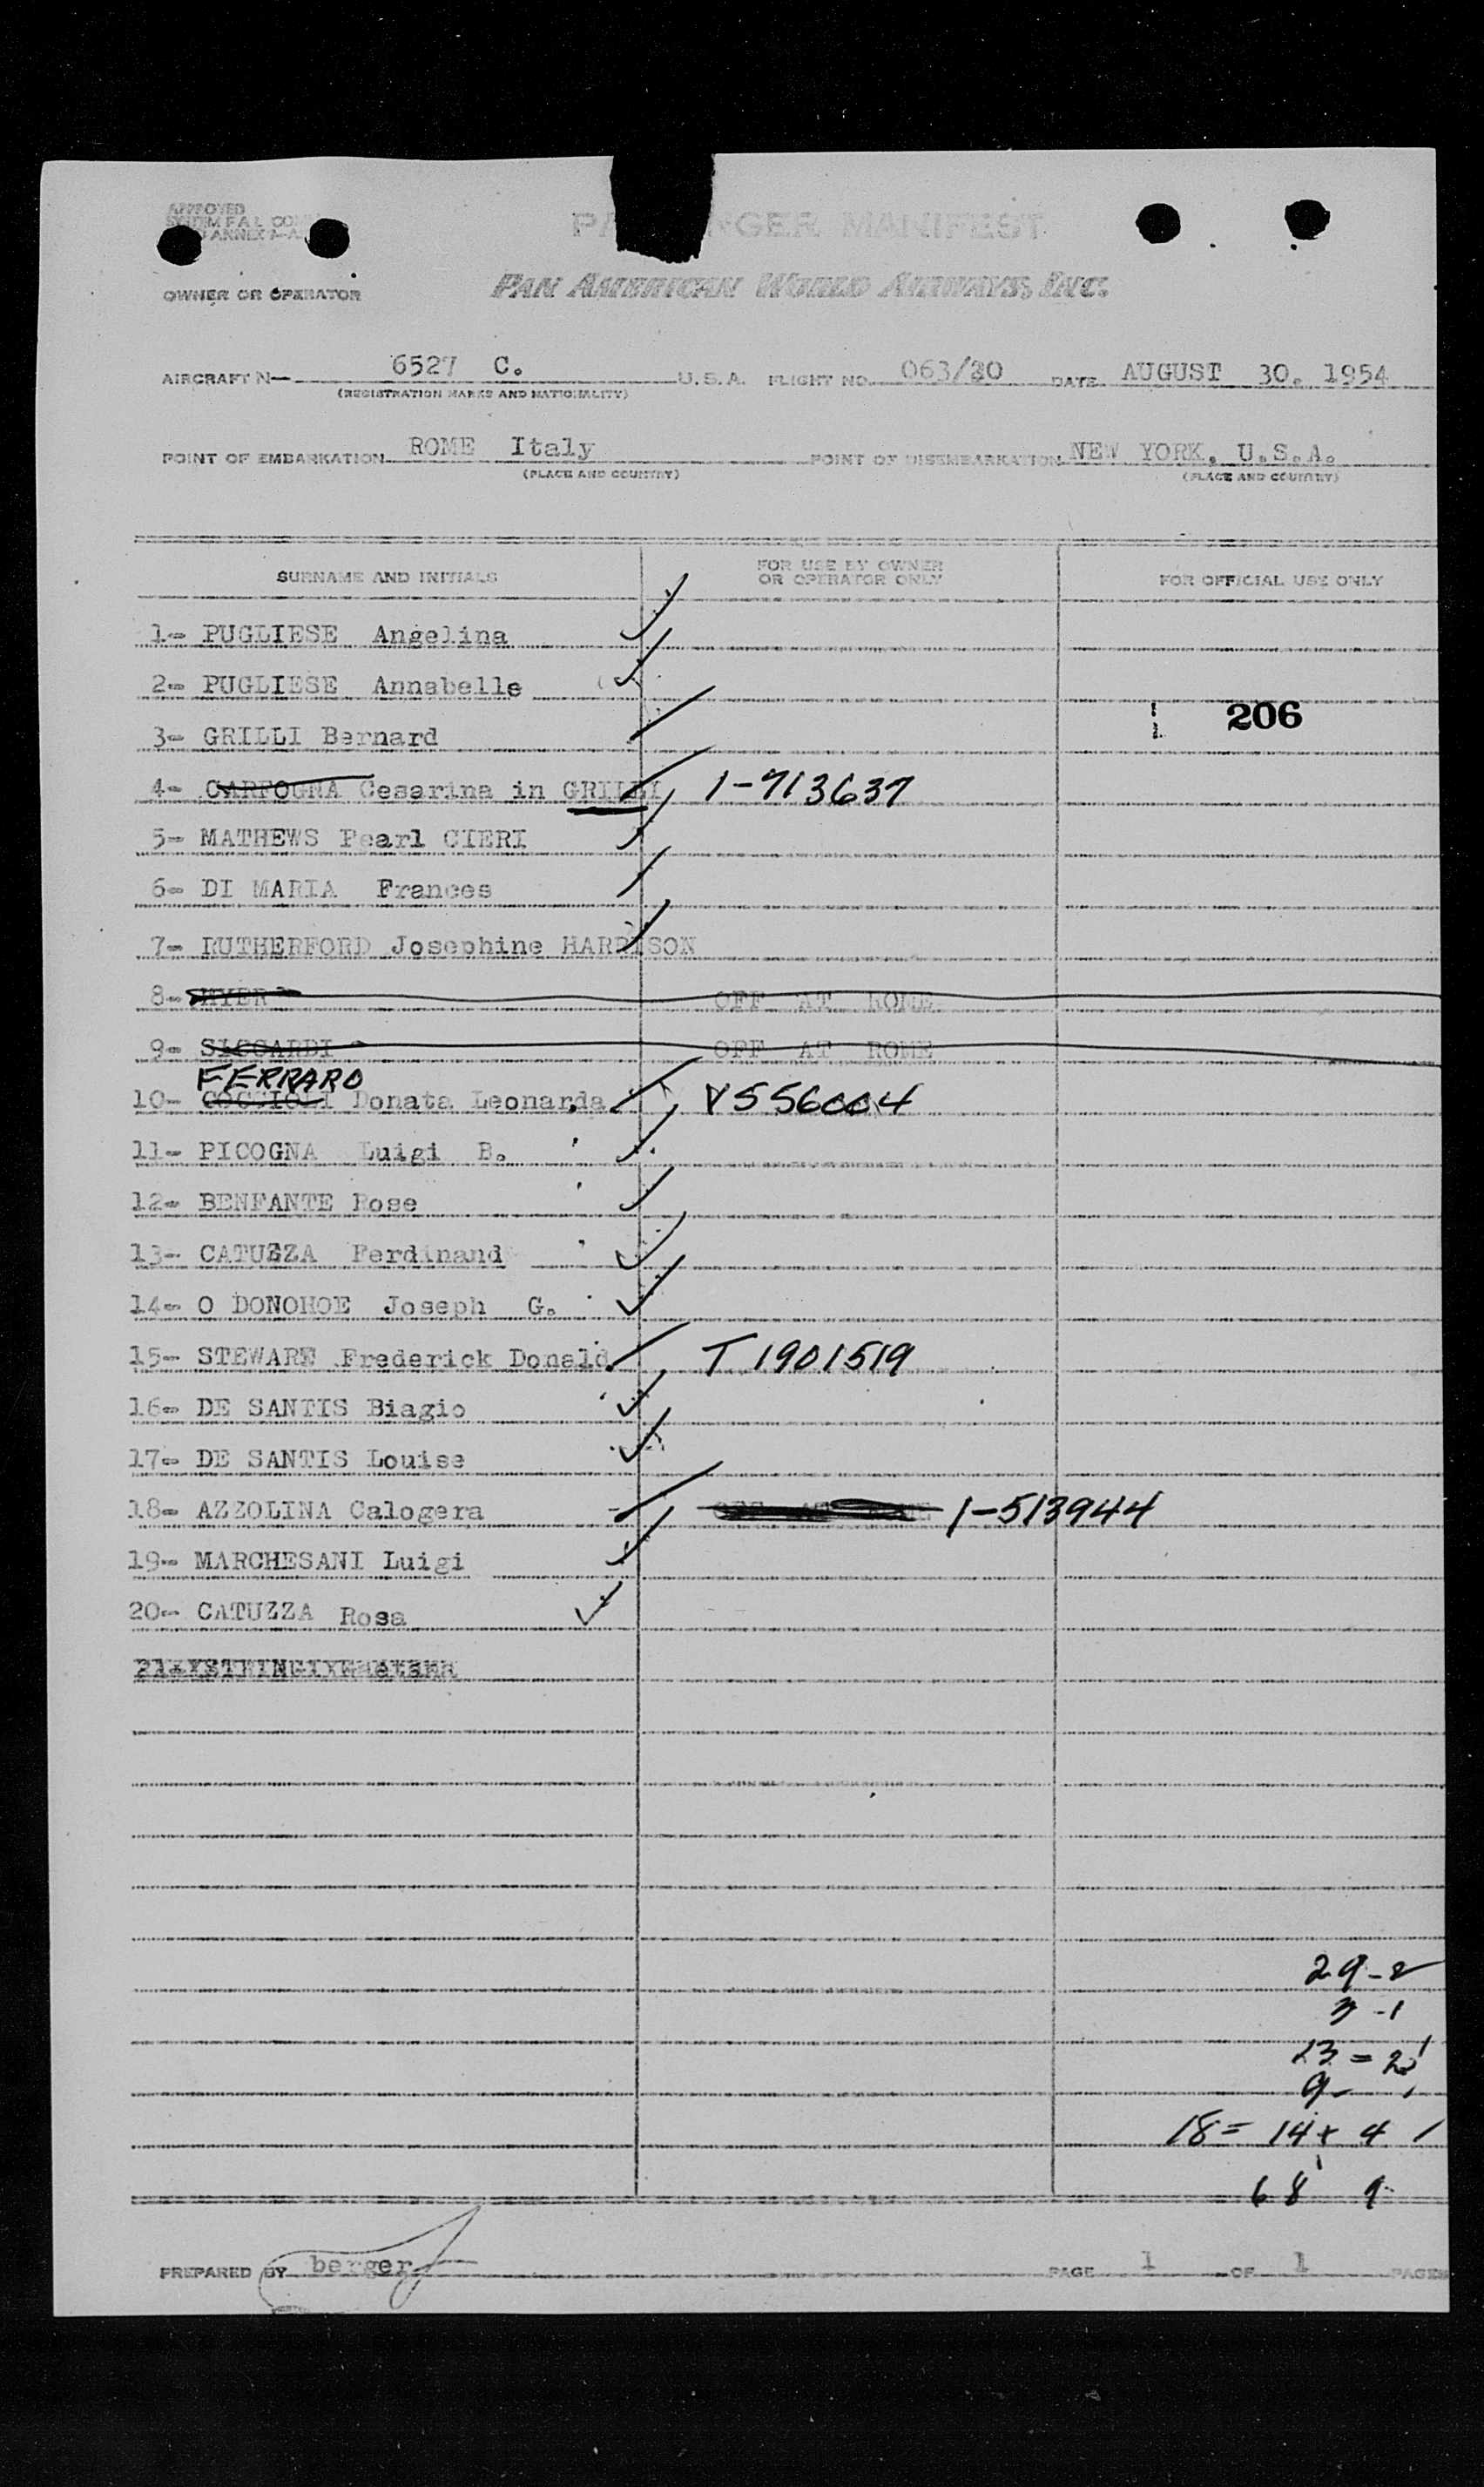 APPROVED
SYSTEM F A L CO
ANNEX 1-A
PA NGER MANIFEST
OWNER OR OPERATOR PAN AMERICAN WORLD AIRWAYS, INC.
AIRCRAFT N— 6527 C. U.S.A. FLIGHT NO. 063/30 DATE AUGUST 30. 1954
(REGISTRATION MARKS AND NATIONALITY)
POINT OF EMBARKATION ROME Italy POINT OF DISEMBARKATION NEW YORK, U.S.A.
(PLACE AND COUNTRY) (PLACE AND COUNTRY)
SURNAME AND INITIALS FOR USE BY OWNER OR OPERATOR ONLY FOR OFFICIAL USE ONLY
1- PUGLIESE Angelina
2- PUGLIESE Annabelle
206
3- GRILLI Bernard
4- CARFOGNA Cesarina in GRILLI 1-713637
5- MATHEWS Pearl CIERI
6- DI MARIA Frances
7- RUTHERFORD Josephine HARRISON
8- MYER OFF AT ROME
9- SICCARDI OFF AT ROME
FERRARO
10- COCCIOLI Donata Leonarda V556004
11- PICOGNA Luigi B.
12- BENFANTE Rose
13- CATUZZA Ferdinand
14- O DONOHOE Joseph G.
15- STEWART Frederick Donald T1901519
16- DE SANTIS Biagio
17- DE SANTIS Louise
18- AZZOLINA Calogera OFF AT ROME 1-513944
19- MARCHESANI Luigi
20- CATUZZA Rosa
29-2
-1
23 =
9-
18 = 14 + 4
68 9
PREPARED BY berger PAGE 1 OF 1 PAGES